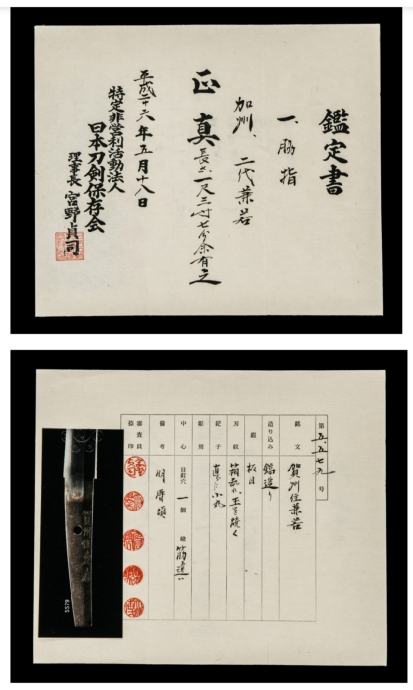 鑑定書
一、脇指
加州、二代兼若
正真 長さ一尺三寸七分余有之
平成二十六年五月十八日
特定非営利活動法人
日本刀剣保存会
理事長 宮野貞司
第五、五七九号
銘文 賀州住兼若
造り込み 鎬造り
鍛 板目
刃紋 箱乱れ、玉を焼く
鋩子 直ぐ小丸
彫刻
中心 目釘穴 一個 鑢 筋違い
備考 明暦頃
審査員
捺印
5579